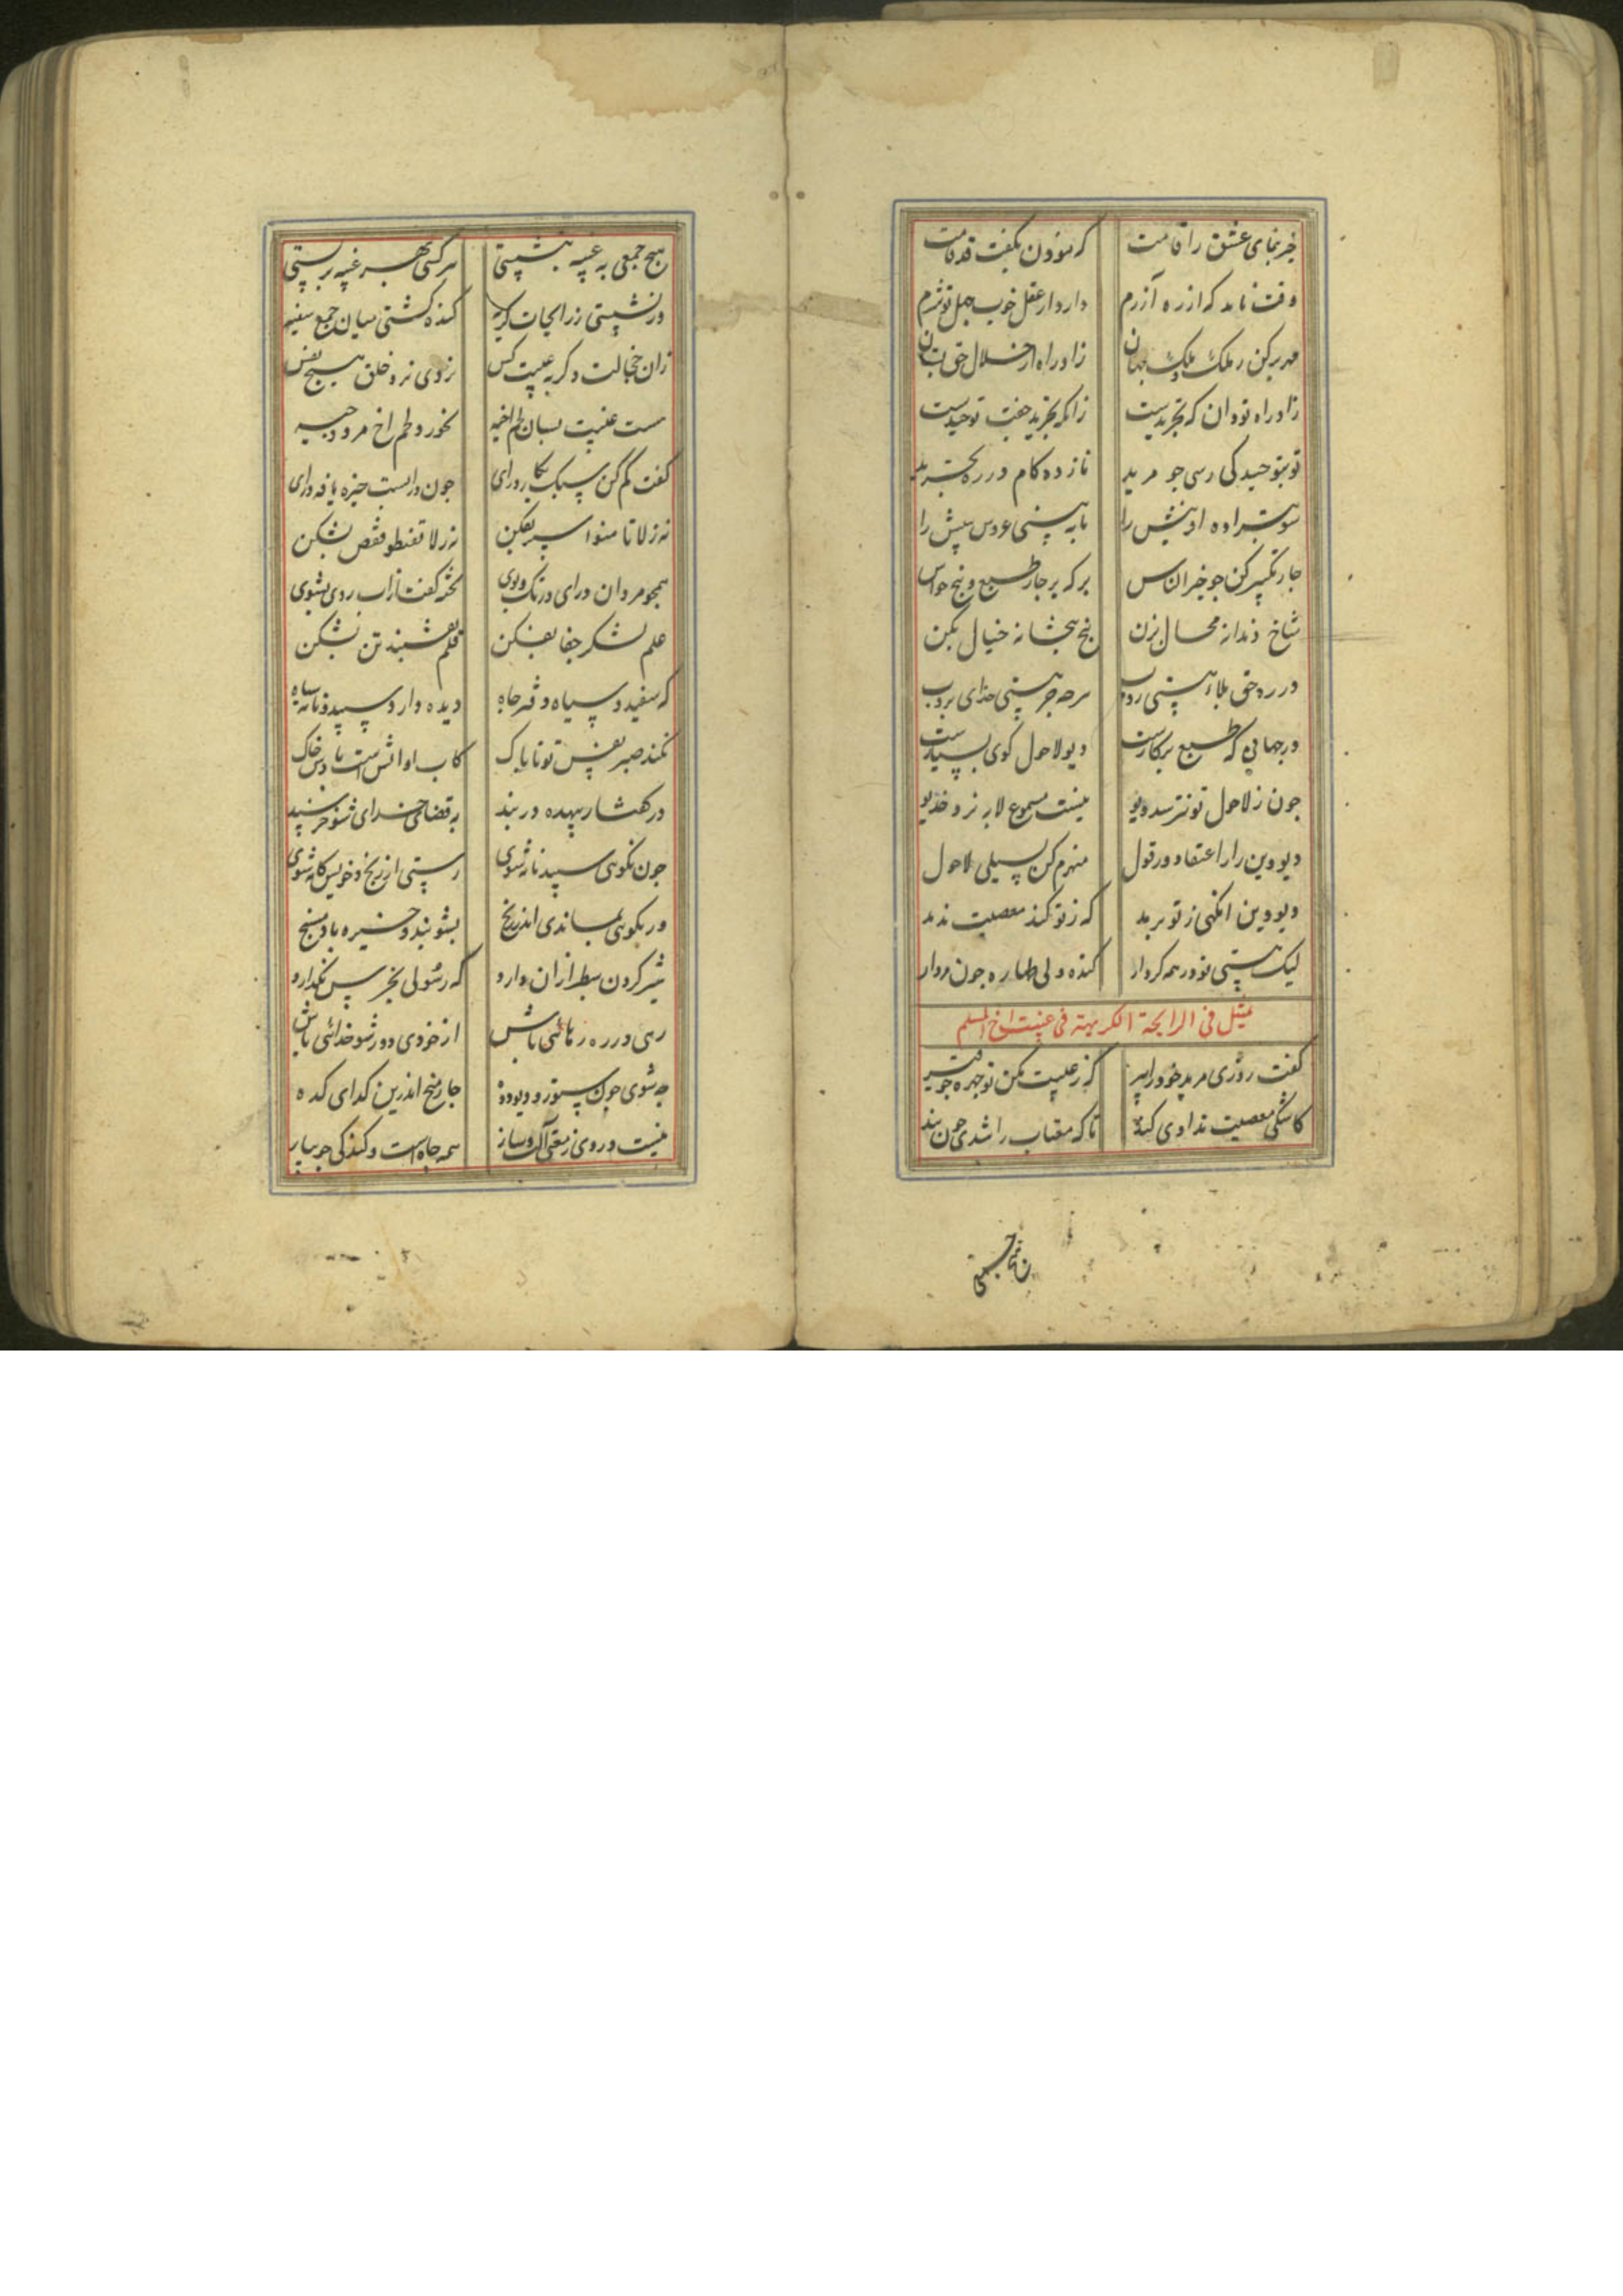 خیز بنمای عشق را قامت که موذن بگفت قد قامت
وقت نامد که از ره آزرم دارد از عقل خوب جهل تو شرم
مهر برکن ز ملک و ملک جهان زاد راه از خلال حق بستان
زاد راه تو دان که تجریدست زانکه تجرید جفت توحیدست
تو بتوحید کی رسی جو مرید نازده کام در ره تجرید
را بابه بینی عروس بیش را
جار تکبیر کن جو خیر الناس بر که بر جار طبع و پنج حواس
شاخ دندانه محال بزن پنج پنجشانه خیال بکن
در ره حق بلاء هستی روب سرحه جز هستی خدای بروب
در جهانی که طبع برکارست دیو لاحول کوی بسیارست
جون ز لاحول تو نترسد دیو نیست مسموع لابه نزد خدیو
دیو دین را ز اعتقاد و ز قول منهزم کن بسیلی لاحول
دیو دین انکهی ز تو برمد که ز تو کند معصیت ندمد
لیک هستی تو در همه کردار کنده ولی طهاره جون مردار
تمثل فی الرایحة الکریهة فی غیبت اخ المسلم
کفت روزی مرید خود را پیر که ز غیبت مکن تو جهره جو قیر
کاشکی معصیت ندادی کند تا که مغتاب را شدی جون بند
هیچ جمعی به غیبه ننشستی هر کسی بهر غیبه بر بستی
ور نشستی ز رایحات کریه کنده کشتی میان جمع سفیه
زان خجالت دکر به عیبت کس نزدی نزد خلق هیچ نفس
هست غیبت بسان لحم اخیه نخورد لحم اخ مرد وجیه
کفت کم کن سبک بکار درای جون درایست خیره یافه درای
نه ز لا تامنوا سپر بفکن نه ز لا تقنطوا قفص بشکن
همجو مردان درای در تک و پوی تخته کفت ز آب روی بشوی
علم لشکر جفا بفکن قلم نقشبند تن بشکن
که سفید و سیاه دفتر جاه دیده دارد سپید و نامه سیاه
نکند صبر نفس تو ناپاک کاب او آتش است و باد و خاک
در کفتار بیهده در بند به قضای خدای شو خرسند
جون نکوهی سپید نامه شوی رستی از رنج و خویش کامه شوی
ور بکوهی بماندی اندر رنج بشو بند و خیره باد مسنج
شیر کردون بنظر ازان دارد که رسولی بخرس نکذارد
رهی در ره رهائی باش از خودی دور شو خدائی باش
جه شوی جون ستور و دیو و دده جار میخ اندرین کدای کده
نیست در وی ز معنی آلت و ساز همه جاه است